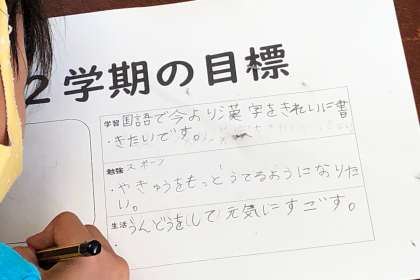 2学期の目標
学習 国語で今より漢字をきれいに書
きたいです。
勉強 スポーツ
・やきゅうをもっとうてるようになりた
い。
生活 うんどうを(して)元気にすごす。